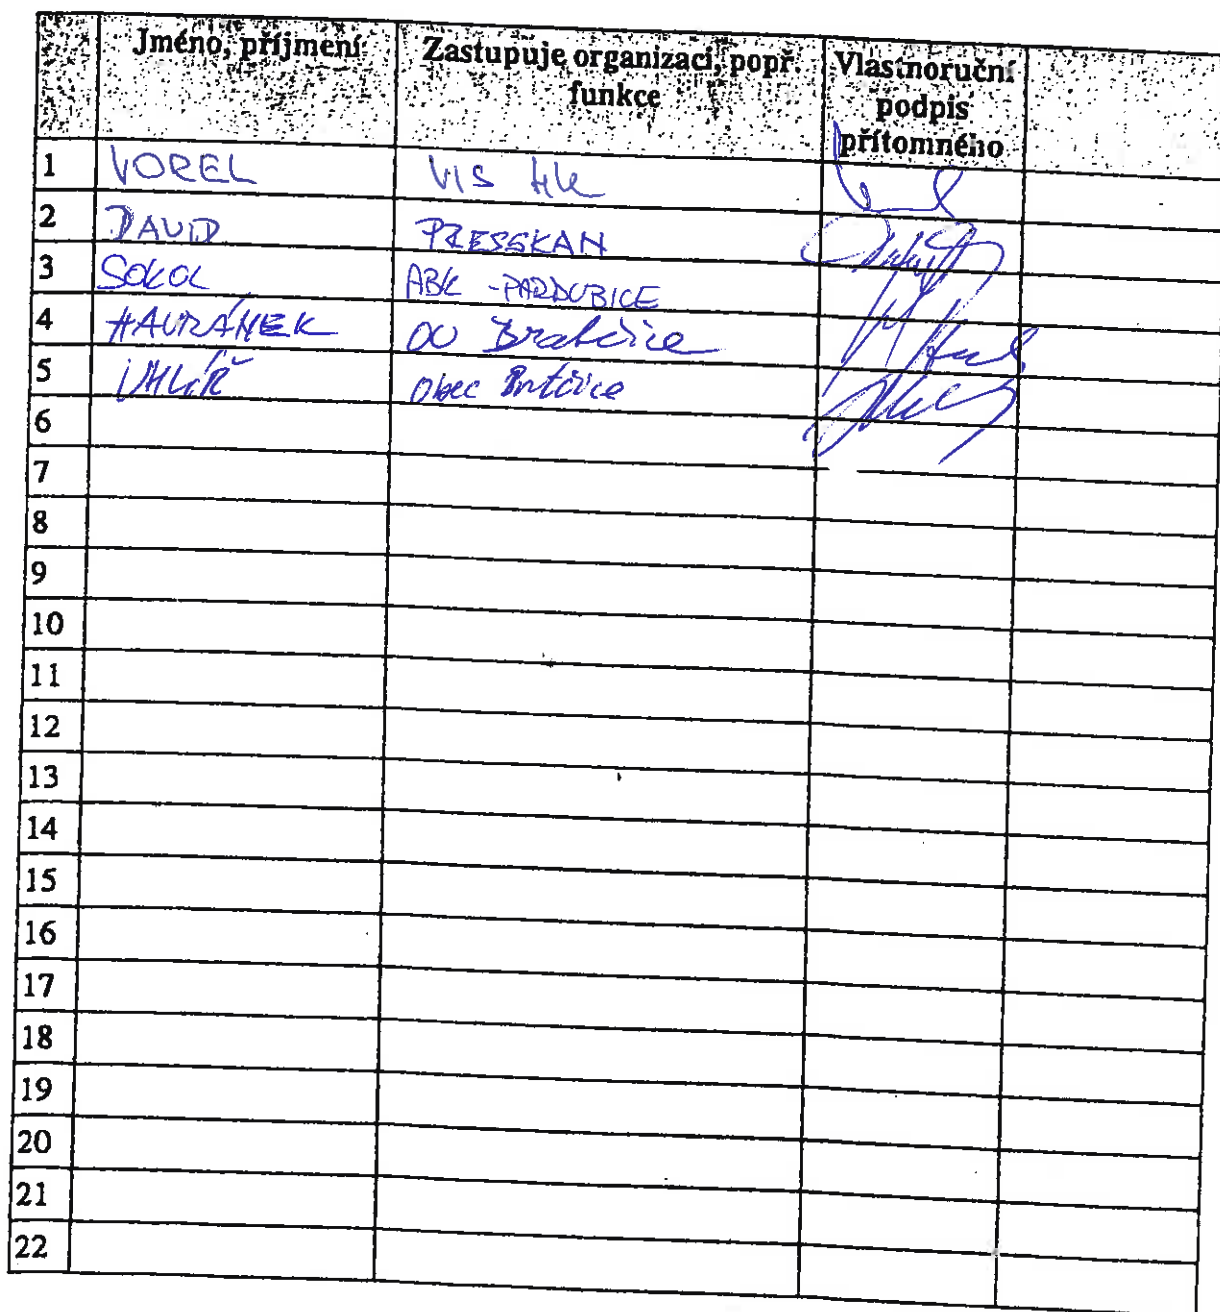 Jméno, příjmení Zastupuje organizaci, popř. funkce Vlastnoruční podpis přítomného
1 VOREL VIS HK
2 DAVID PRESSKAN
3 SOKOL ABK - PARDUBICE
4 HAVRÁNEK OÚ Bratčice
5 UHLÍŘ Obec Bratčice
6
7
8
9
10
11
12
13
14
15
16
17
18
19
20
21
22